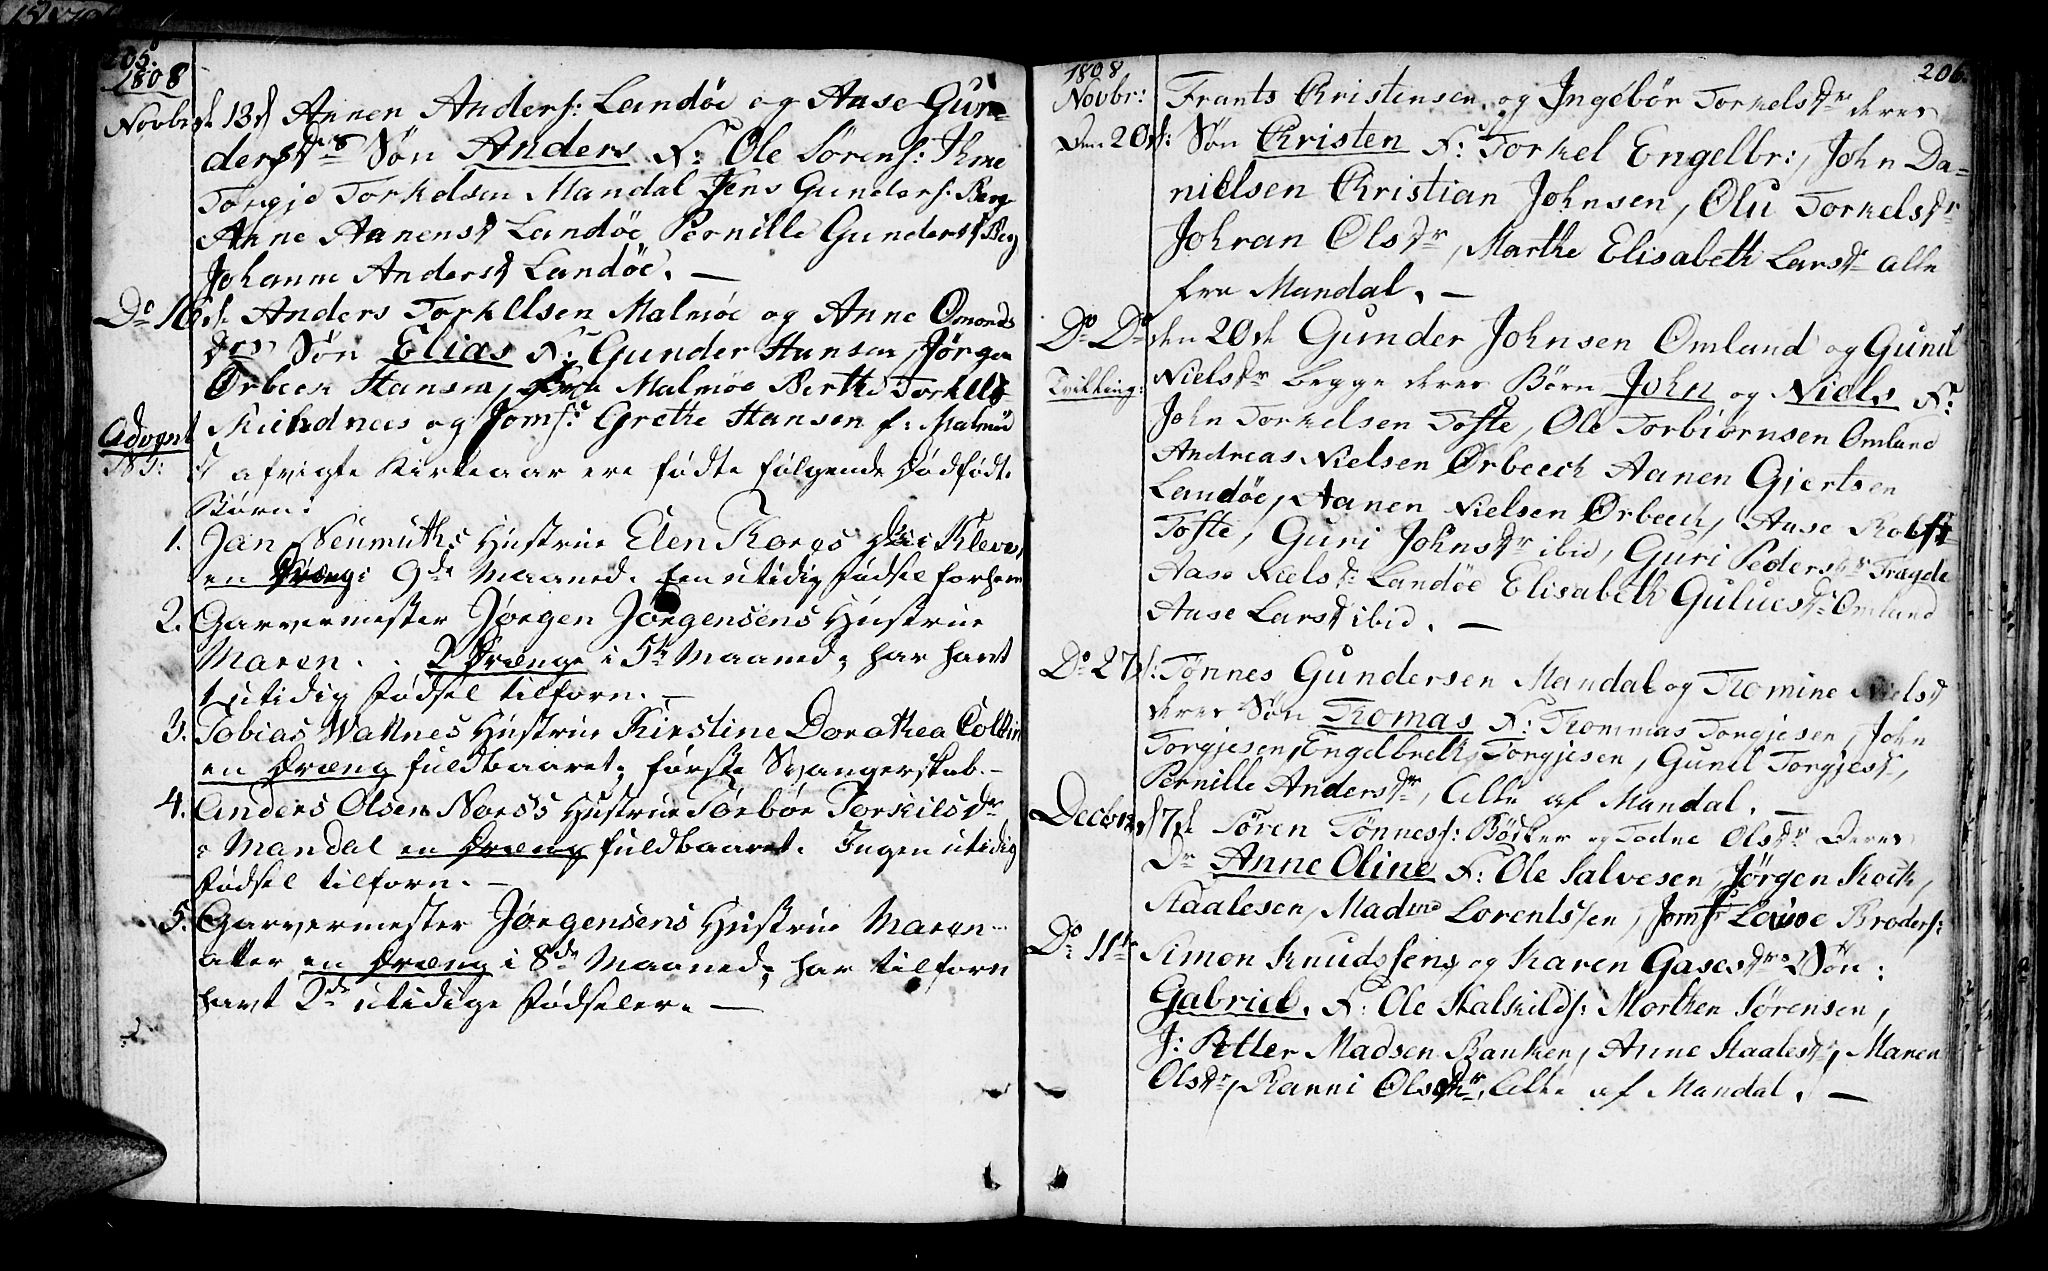 205.
1808
Novbr d. 13d Aanen Anders: Landöe og Aase Gun=
dersdr Søn Anders F: Ole Sörens: Ihme
Torgje Torkelsen Mandal Jens Gunders: Berg
Anne Aanensd Landöe Pernille Gundersd Berg
Johanne Andersd Landöe. —
Do 16d. Anders Torkelsen Malmöe og Anne Omonds
drs Søn Elias F: Gunder Hansen, Jörgen
Örbeck Hansen, Malmöe Berthe Torkels
og Jomf: Grethe Hansen f: Malmöe
Advent
NB: I afvigte Kirkeaar ere fødte følgende dødfødte
Börn:
1. Jan Neumuths Hustrue Elen Thores Kleve,
en Dreng i 9de Maaned. Een utidig fødsel forhen
2. Garvermester Jörgen Jörgensens Hustrue
Maren . . 2 Drenge i 5te Maaned, har havt
1 utidig fødsel tilforn. —
3. Tobias Wattnes Hustrue Kirstine Dorothea Collin
en Dreng fuldbaaret, første Svangerskab. —
4. Anders Olsen Noess Hustrue Törbör Torkilsdr
i Mandal en Dreng fuldbaaret. Ingen utidig
fødsel tilforn. —
5. Garvermester Jörgensens Hustrue Maren
atter en Dreng i 8de Maaned, har tilforn
havt 2de utidige fødseler. —
206.
1808
Novbr: Frants Christensen og Ingebör Torkelsdr deres
Den 20d: Søn Christen F: Torkel Engelbr:, John Da=
nielsen Christian Johnsen, Olu Torkelsdr
Johran Olsdr, Marthe Elisabeth Larsdr alle
fra Mandal. —
Do Do den 20de Gunder Johnsen Omland og Gunil
Tvilling: Nielsdr begge deres Børn John og Niels F:
John Torkelsen Tofte, Ole Torbiörnsen Omland
Andreas Nielsen Örbeck Aanen Gjertsen
Landöe, Aanen Nielsen Örbeck, Aase Rolfsd
Tofte, Guri Johnsdr ibid, Guri Pedersdr Trægde
Aase Nielsd: Landöe Elisabeth Guluesdr Omland
Aase Larsd ibid. —
Do 27d: Tönnes Gundersen Mandal og Thomine Nielsd
deres Søn Thomas F: Thommas Torgjesen, John
Torgjesen, Engelbreth Torgjesen, Gunil Torgjesd,
Pernille Andersdr, Alle af Mandal. —
Decbr d 7de Sören Tönness: Bödker og Todne Olsdr Deres
Dr Anne Oline F: Ole Salvesen, Jörgen Kock,
Staalesen, Madme Lorentssen, Jomfr Lovise Broders:
Do 11te Simon Knudssens og Karen Gasesdrs Søn:
Gabriel. F: Ole Skalkilds: Morthen Sörensen,
J: Petter Madsen Banken, Anne Staalesdr, Maren
Olsdr, Ranni Olsdr. Alle af Mandal. —